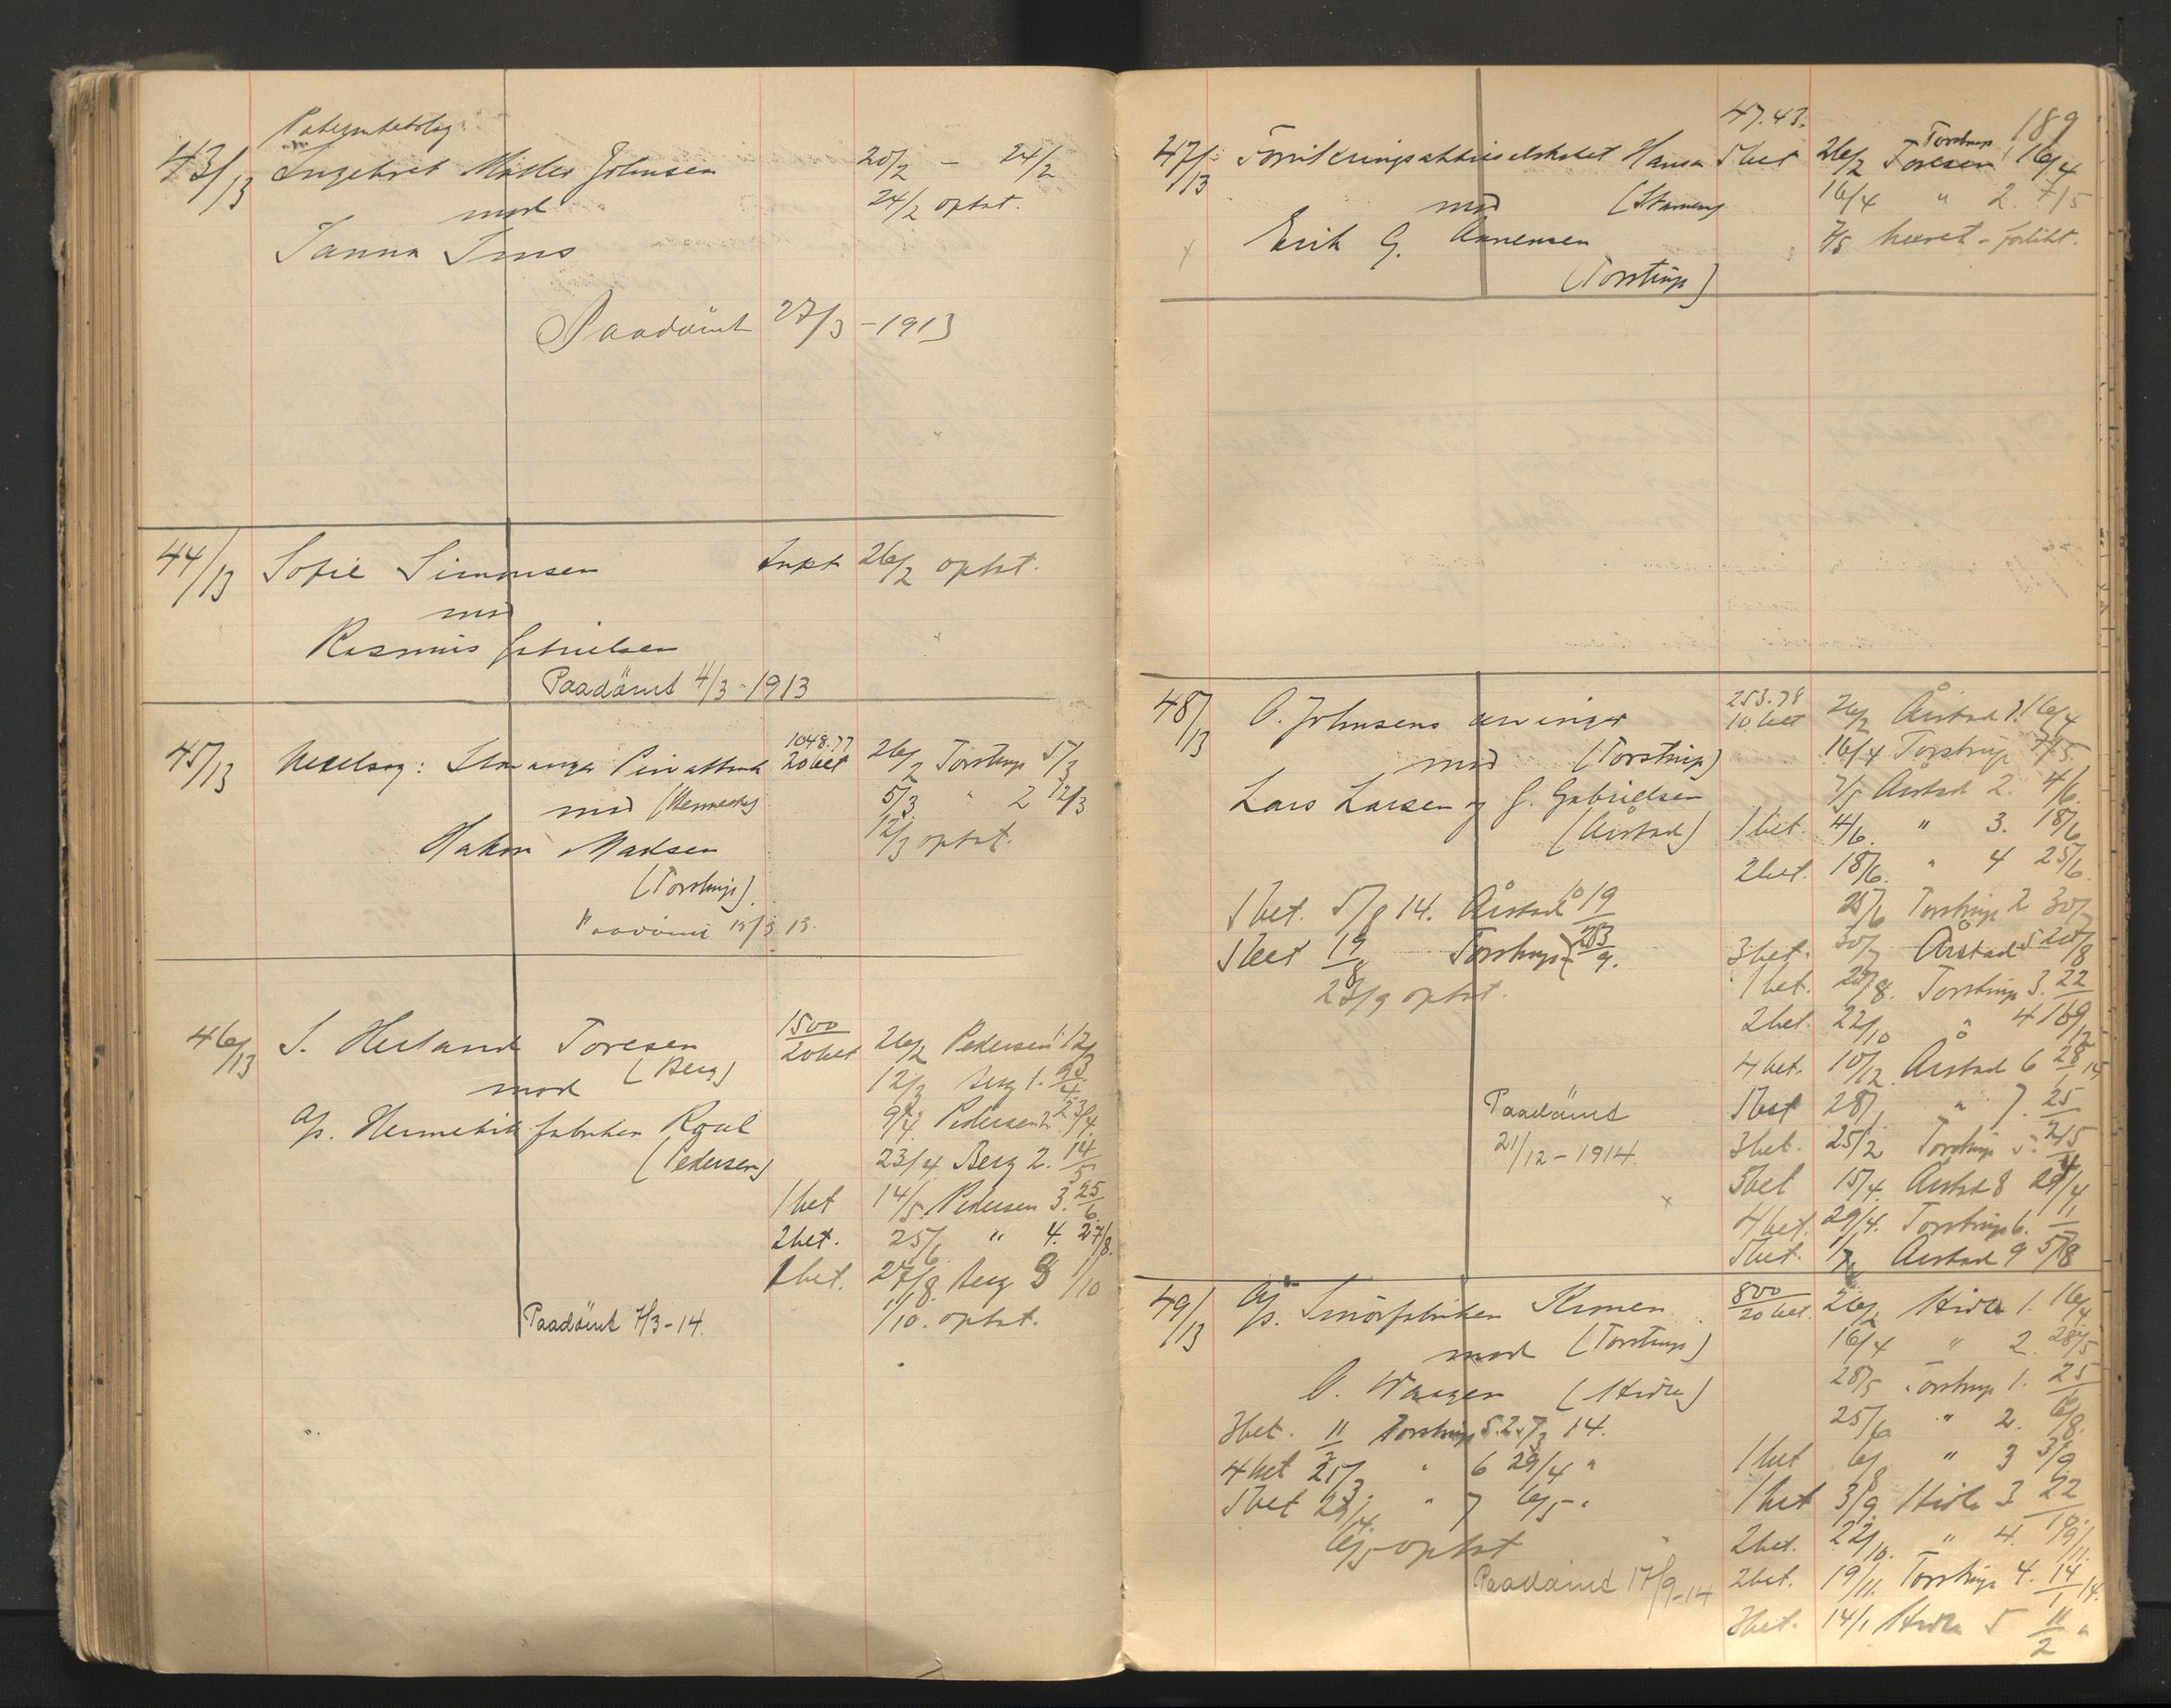 43/13 Ingebret Møller Johnsen 20/2 - 24/2
mod 24/2 optat.
Janna Tens
Paadömt 27/3 - 1913
44/13 Sofie Simonsen Inkt 26/2 optat.
mod
Rasmus Gabrielsen
Paadömt 4/3 - 1913
1048.77
45/13 Vexelsag: Stavanger Privatbank 20 bet 26/2 Torstrup 5/3
mod 5/3 " 2 12/3
Hakon Madsen 12/3 optat.
(Torstrup)
Paadömt 15/3 13.
1500
46/13 S. Herland Toresen 20 bet 26/2 Pedersen 1. 12/3
(Berg)
mod 12/3 Berg 1.
A/s. Hermetikfabriken Royal 9/4. Pedersen 2. 23/4.
(Pedersen) 23/4 Berg 2. 14/5
1 bet 14/5. Pedersen 3. 25/6.
2 bet. 25/6 " 4. 27/8.
1 bet. 27/8. Berg 3 1/10
Paadömt 7/3 - 14. 1/10. optat.
189
47.43.
Torstrup
47/13 Forsikringsaktieselskabet Hansa 5 bet 26/2 Toresen 1 16/4
mod 16/4 " 2. 7/5
Erik G. Aanensen 7/5 hævet - forlikt.
(Torstrup)
253.78
48/13 O. Johnsens arvinger 10 bet 26/2 Årstad 1. 16/4
mod (Torstrup) 16/4 Torstrup 7/5.
Lars Larsen og G. Gabrielsen 7/5 Årstad 2. 4/6.
(Årstad) 1 bet. 4/6. " 3. 18/6
2 bet. 18/6. " 4 25/6.
1 bet. 5/8 14. Årstad 10 19/8 25/6 Torstrup 2 30/7
1 bet 19/8 Torstrup 23/9. 3 bet. 30/7 Årstad 5 20/8
23/9 optat. 1 bet. 20/8. Torstrup 3. 22
2 bet. 22/10 " 4
4 bet. 10/12. Årstad 6 28/1 14
Paadömt 1 bet 28/1 " 7. 25
21/12 - 1914. 3 bet. 25/2 Torstrup 5.
5 bet 15/4. Årstad 8 29/4
4 bet. 29/4. Torstrup 6.
1 bet. Årstad 9 5/8
800
49/13 A/s. Smörfabriken Kronen 20 bet. 26/2 Hidle 1. 16/4
mod (Torstrup) 16/4 " 2. 28/5
O. Waagen (Hidle) 28/5 Torstrup 1. 25/6
3 bet. 11/2 Torstrup 5. 25/3 14. 25/6 " 2. 6/8.
4 bet 25/3. " 6 29/4 " 1 bet 6/8 " 3 3/9
1 bet 29/4. " 7 6/5 - " 1 bet 3/9. Hidle 3 22/10.
6/5 optat 2 bet. 22/10. " 4. 19/11.
Paadömt 17/9 - 14 2 bet. 19/11. Torstrup 4. 14/1 14.
3 bet. 14/1 Hidle 5 11/2 "